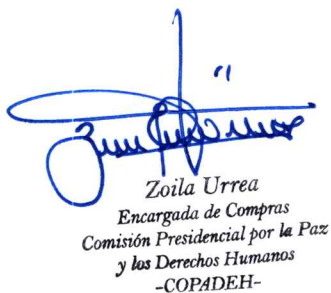 Zoila Urrea
Encargada de Compras
Comisión Presidencial por la Paz
y los Derechos Humanos
-COPADEH-